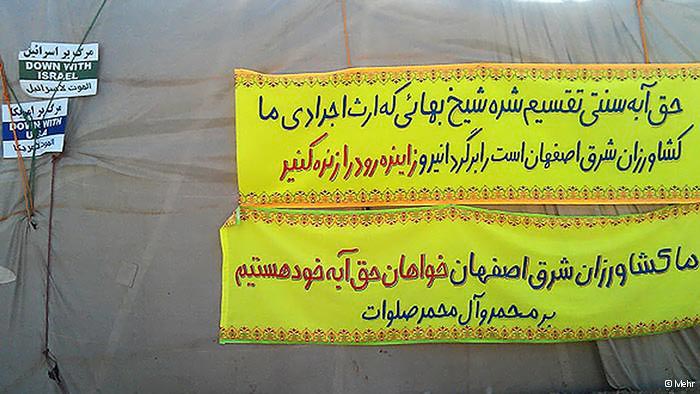 مرگ بر اسرائیل
DOWN WITH
ISRAEL
الموت لاسرائیل
مرگ بر امریکا
DOWN WITH
USA
حق آبه سنتی تقسیم شده شیخ بهائی که ارث اجرادی ما
کشاورزان شرق اصفهان است را برگردانیر و زاینره رود را زنره کنیر
ما کشاورزان شرق اصفهان خواهان حق آبه خود هستیم
بر محمر و آل محمر صلوات
© Mehr